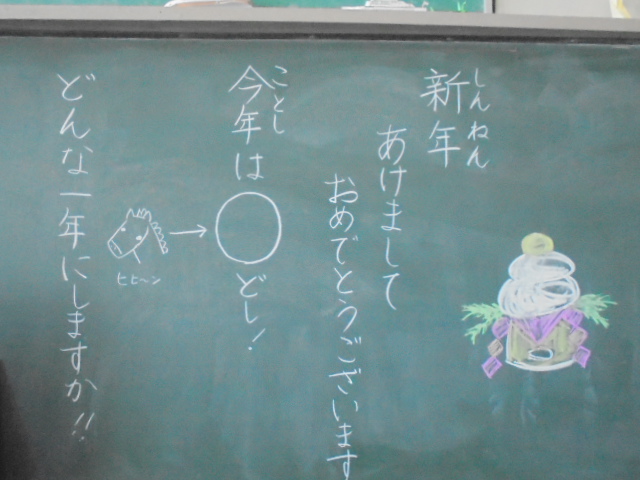 新年
しんねん
あけまして
おめでとうございます
今年は○どし!
ことし
ヒヒ〜ン
どんな一年にしますか!!